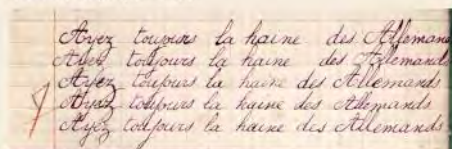 Ayez toujours la haine des Allemand
Ayez toujours la haine des Allemands
Ayez toujours la haine des Allemands
Ayez toujours la haine des Allemands
Ayez toujours la haine des Allemands